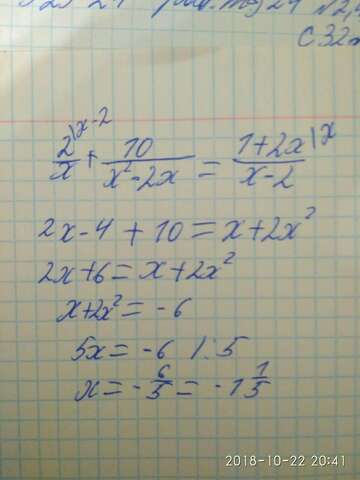 С 32
2/x |x-2 + 10/(x²-2x) = (1+2x)/(x-2) |x
2x-4+10=x+2x²
2x+6=x+2x²
x+2x²=-6
5x=-6 /:5
x=-6/5=-1 1/5
2018-10-22 20:41